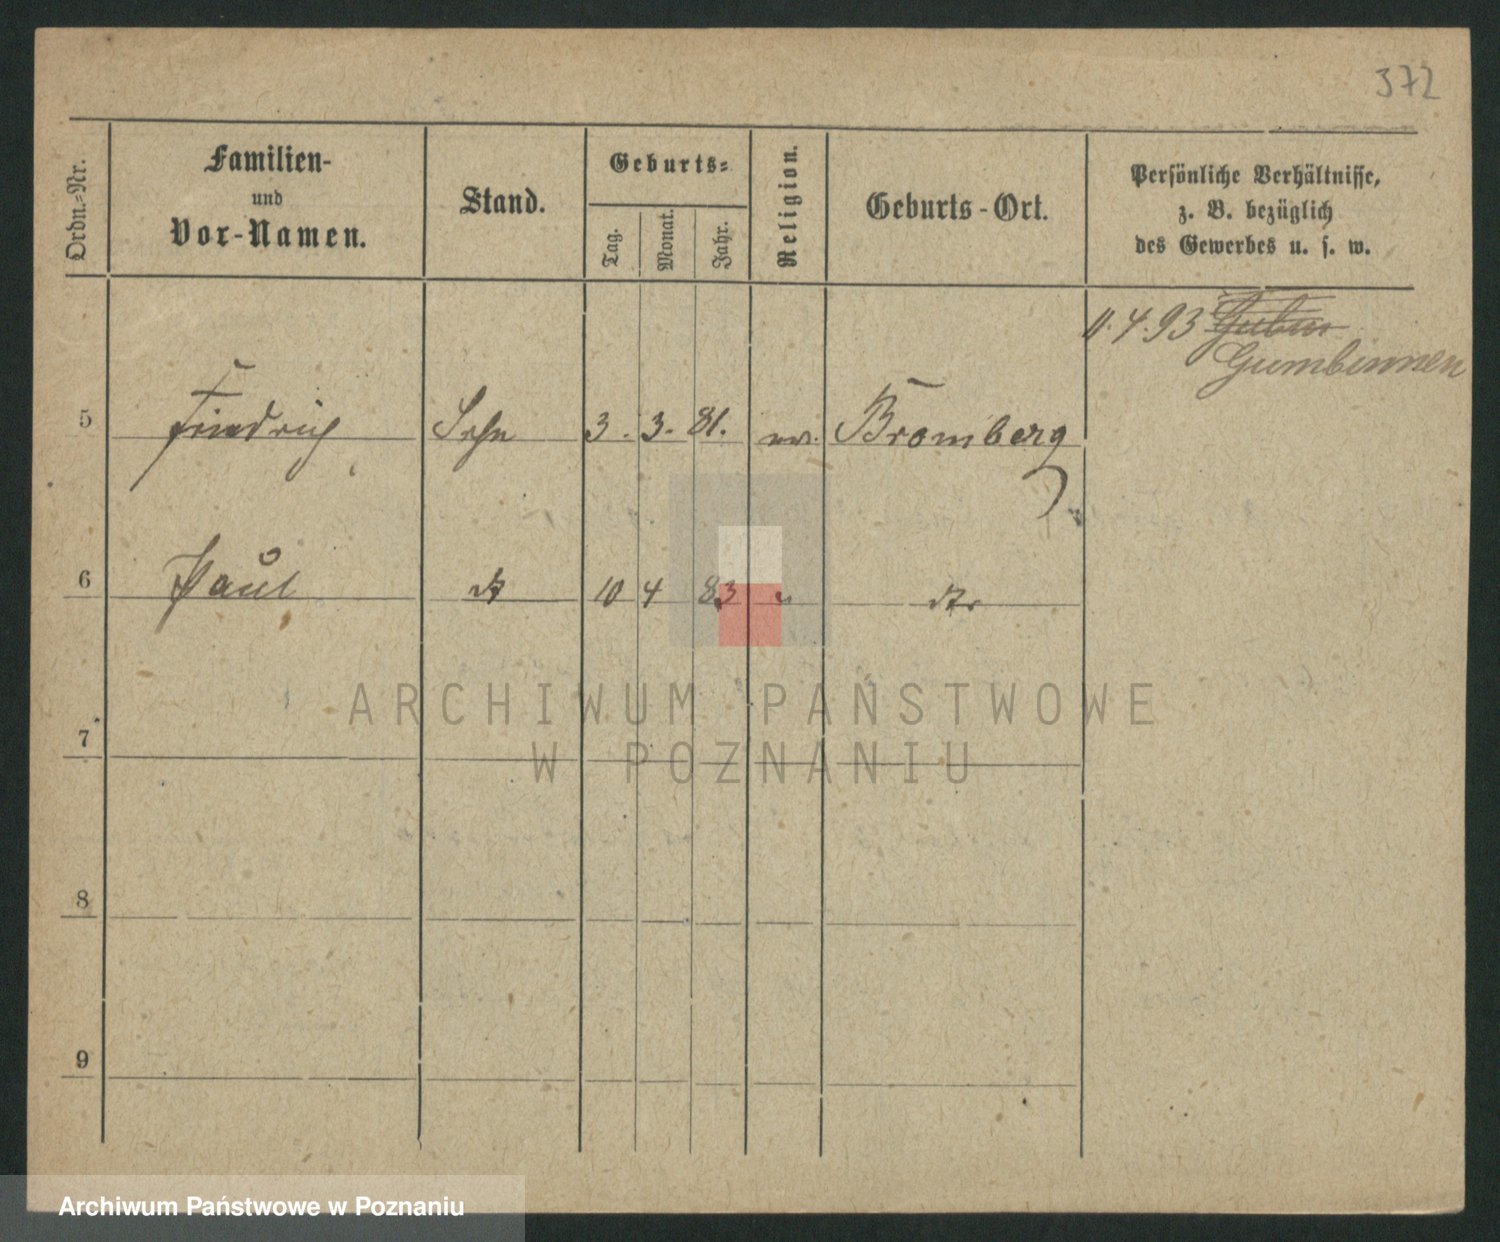 372
Ordn.-Nr.
Familien-
und
Vor-Namen.
Stand.
Geburts-
Tag.
Monat.
Jahr.
Religion.
Geburts-Ort.
Persönliche Verhältnisse,
z. B. bezüglich
des Gewerbes u. s. w.
11.4.93 Guben
Gumbinnen
5 Friedrich Sohn 3. 3. 81. ev. Bromberg
6 Paul dto 10 4 83 " dto
ARCHIWUM PAŃSTWOWE
W POZNANIU
7
8
9
Archiwum Państwowe w Poznaniu